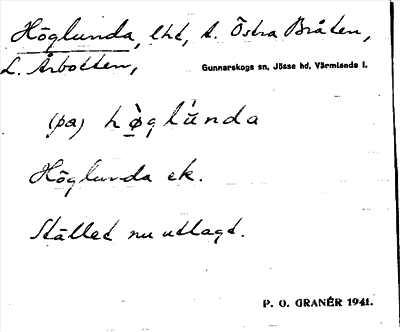 Höglunda, lht, t. Östra Bråten,
L. Årbotten,
Gunnarskogs sn, Jösse hd, Värmlands l.
(pa) hø̀glúnda
Höglunda ek.
Stället nu utlagt.
P. O. GRANÉR 1941.